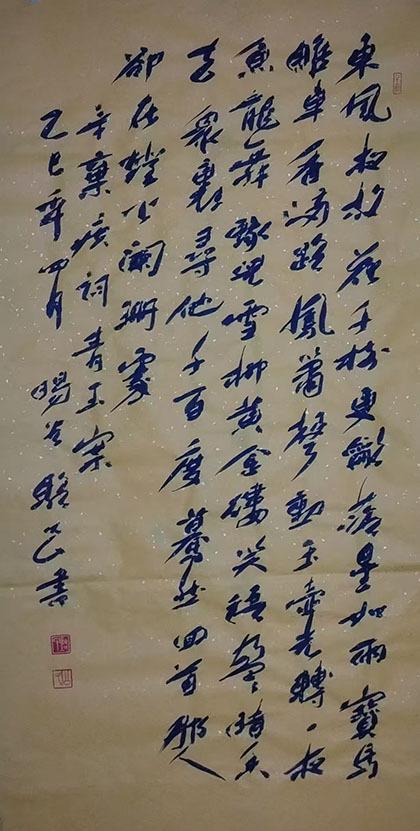 東風夜放花千樹更龡落星如雨寶馬
雕車香滿路鳳簫聲動玉壺光轉一夜
魚龍舞蛾兒雪柳黃金縷笑語盈盈暗香
去衆裏尋他千百度驀然回首那人
卻在燈火闌珊處
辛棄疾詞青玉案
乙巳年四月 書